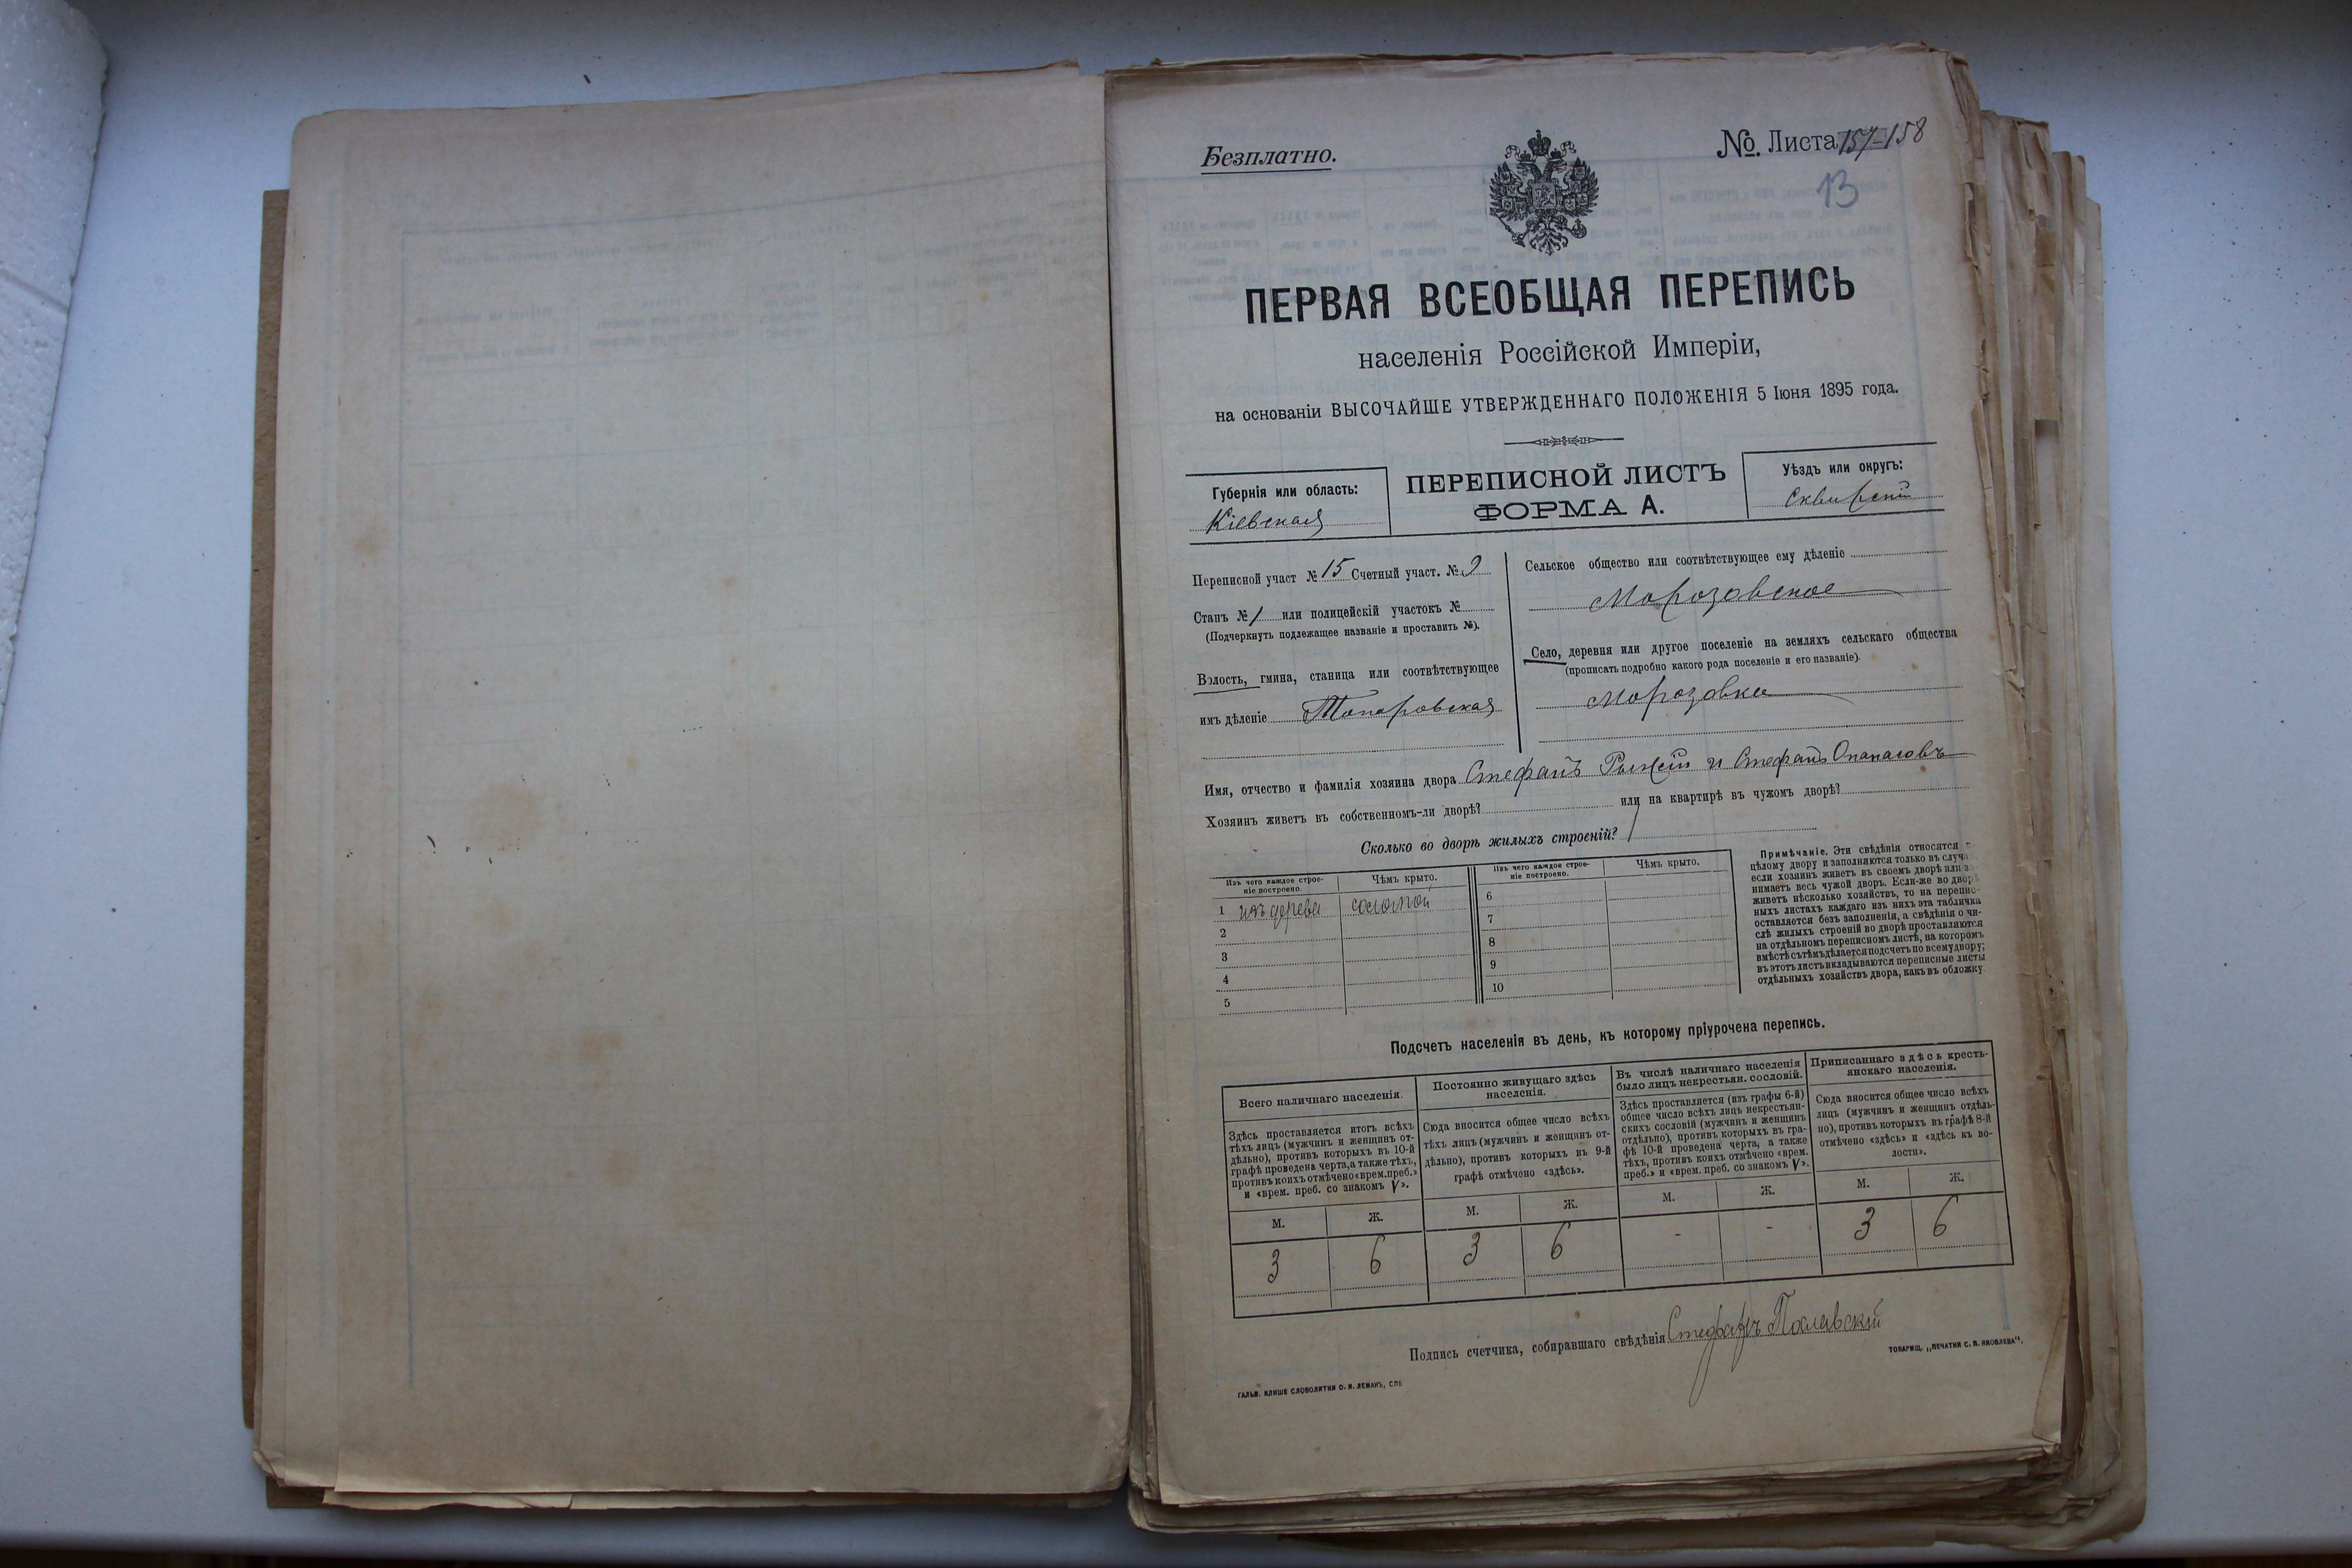 Безплатно.
№ Листа 157-158
13
ПЕРВАЯ ВСЕОБЩАЯ ПЕРЕПИСЬ
населенія Россійской Имперіи,
на основаніи ВЫСОЧАЙШЕ УТВЕРЖДЕННАГО ПОЛОЖЕНІЯ 5 Іюня 1895 года.
Губернія или область:
Кіевская
ПЕРЕПИСНОЙ ЛИСТЪ
ФОРМА А.
Уѣздъ или округъ:
Сквирскій
Переписной участ № 15 Счетный участ. № 9
Станъ № 1 или полицейскій участокъ №
(Подчеркнуть подлежащее названіе и проставить №).
Волость, гмина, станица или соотвѣтствующее
имъ дѣленіе Топоровская
Сельское общество или соотвѣтствующее ему дѣленіе
Морозовское
Село, деревня или другое поселеніе на земляхъ сельскаго общества
(прописать подробно какого рода поселеніе и его названіе).
Морозовка
Имя, отчество и фамилія хозяина двора Стефанъ Рыжій и Стефанъ Опанасовъ
Хозяинъ живетъ въ собственномъ-ли дворѣ? или на квартирѣ въ чужомъ дворѣ?
Сколько во дворѣ жилыхъ строеній? 1
Изъ чего каждое строе-
ніе построено.
Чѣмъ крыто.
Изъ чего каждое строе-
ніе построено.
Чѣмъ крыто.
1 изъ дерева соломой
2
3
4
5
6
7
8
9
10
Примѣчаніе. Эти свѣдѣнія относятся
цѣлому двору и заполняются только въ случа
если хозяинъ живетъ въ своемъ дворѣ или
нимаетъ весь чужой дворъ. Если-же во дворѣ
живетъ нѣсколько хозяйствъ, то на перепис-
ныхъ листахъ каждаго изъ нихъ эта табличка
оставляется безъ заполненія, а свѣдѣнія о чи-
слѣ жилыхъ строеній во дворѣ проставляются
на отдѣльномъ переписномъ листѣ, на которомъ
вмѣстѣ съ тѣмъ дѣлается подсчетъ по всему двору;
въ этотъ листъ вкладываются переписные листы
отдѣльныхъ хозяйствъ двора, какъ въ обложку.
Подсчетъ населенія въ день, къ которому пріурочена перепись.
Всего наличнаго населенія.
Здѣсь проставляется итогъ всѣхъ
тѣхъ лицъ (мужчинъ и женщинъ от-
дѣльно), противъ которыхъ въ 10-й
графѣ проведена черта, а также тѣхъ,
противъ коихъ отмѣчено «врем. преб.»
и «врем. преб. со знакомъ V».
М. Ж.
3 6
Постоянно живущаго здѣсь
населенія.
Сюда вносится общее число всѣхъ
тѣхъ лицъ (мужчинъ и женщинъ от-
дѣльно), противъ которыхъ въ 9-й
графѣ отмѣчено «здѣсь».
М. Ж.
3 6
Въ числѣ наличнаго населенія
было лицъ некрестьян. сословій.
Здѣсь проставляется (изъ графы 6-й)
общее число всѣхъ лицъ некрестьян-
скихъ сословій (мужчинъ и женщинъ
отдѣльно), противъ которыхъ въ гра-
фѣ 10-й проведена черта, а также
тѣхъ, противъ коихъ отмѣчено «врем.
преб.» и «врем. преб. со знакомъ V».
М. Ж.
- -
Приписаннаго здѣсь кресть-
янскаго населенія.
Сюда вносится общее число всѣхъ
лицъ (мужчинъ и женщинъ отдѣль-
но), противъ которыхъ въ графѣ 8-й
отмѣчено «здѣсь» и «здѣсь къ во-
лости».
М. Ж.
3 6
Подпись счетчика, собиравшаго свѣдѣнія Стефанъ
ГАЛЬВ. КЛИШЕ СЛОВОЛИТНИ О. И. ЛЕМАНЪ, СПБ
ТОВАРИЩ. „ПЕЧАТНИ С. П. ЯКОВЛЕВА“.